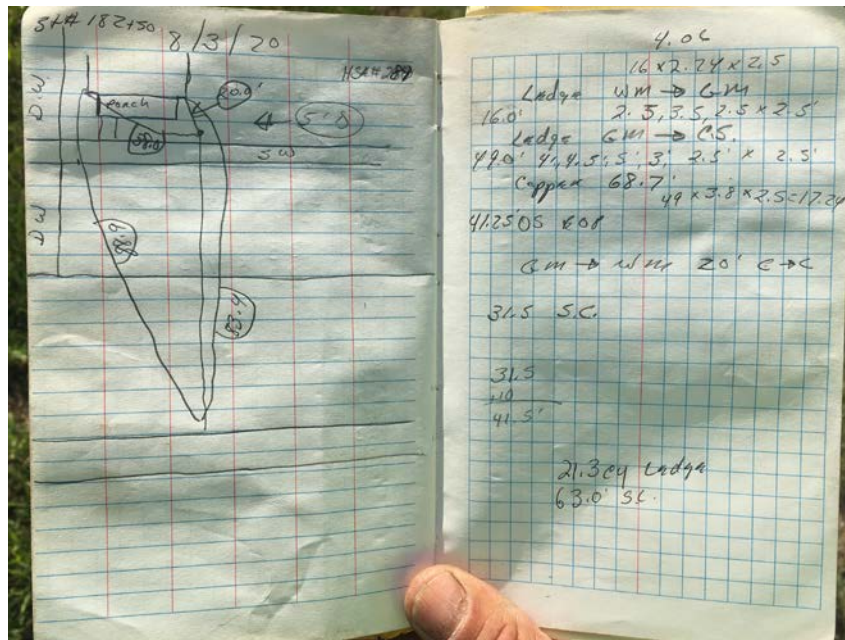 St# 182+50
8/3/20
HSE# 289
D.W
Porch
20.0'
58.0
5'0
SW
D W
88.9
83.4
4.06
16 x 2.74 x 2.5
Ladge WM → GM
16.0' 2.5, 3.5, 2.5 x 2.5'
Ladge GM → CS.
49.0' 4, 4.5, 5', 3', 2.5' x 2.5'
Copper 68.7'
49 x 3.8 x 2.5 = 17.24
41.25 OS
GM → WM 20' C→C
31.5 S.C.
31.5
10
41.5'
21.3 cy Ladge
63.0' SC.